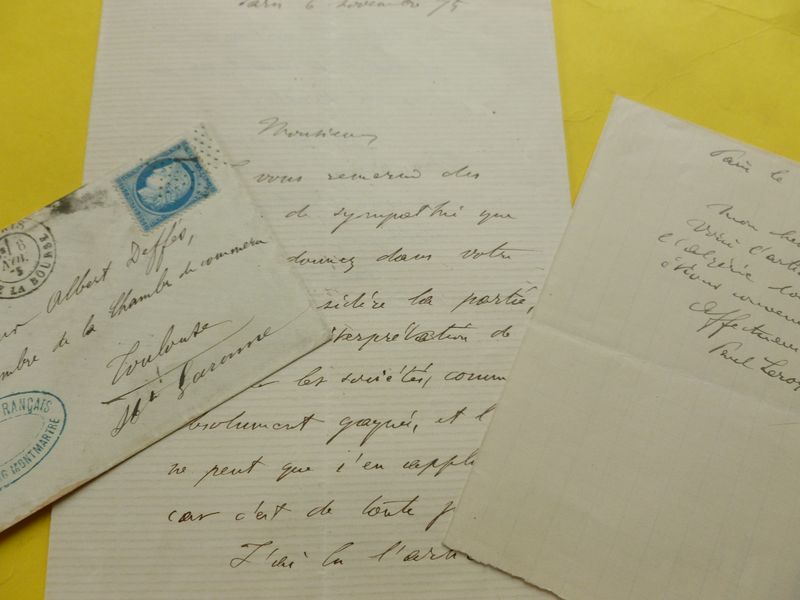 Paris 6 novembre 75
Monsieur,
vous remercie des
de sympathie que
donnez dans votre
sidère la partie,
terprétation de
les sociétés, comme
bsolument gagné, et l'
ne peut que j'en appl
car c'est de toute
J'ai lu l'arti
RIS
6
LA BOURSE
Albert Deffès,
mbre de la Chambre de commerce
Toulouse
Hte Garonne
FRANÇAIS
MONTMARTRE
Paris le
Mon
l'arti
l'Algérie
Affectueu
Paul Leroy